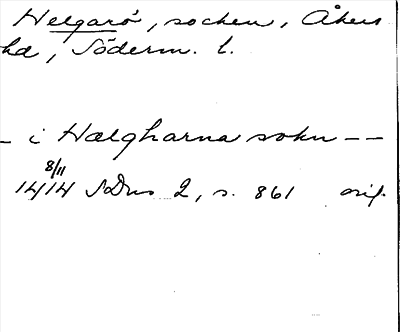 Helgarö, socken, Åkers
hd, Söderm. l.
– i Hælgharna sokn – –
8/11
1414 SDns 2, s. 861 orig.